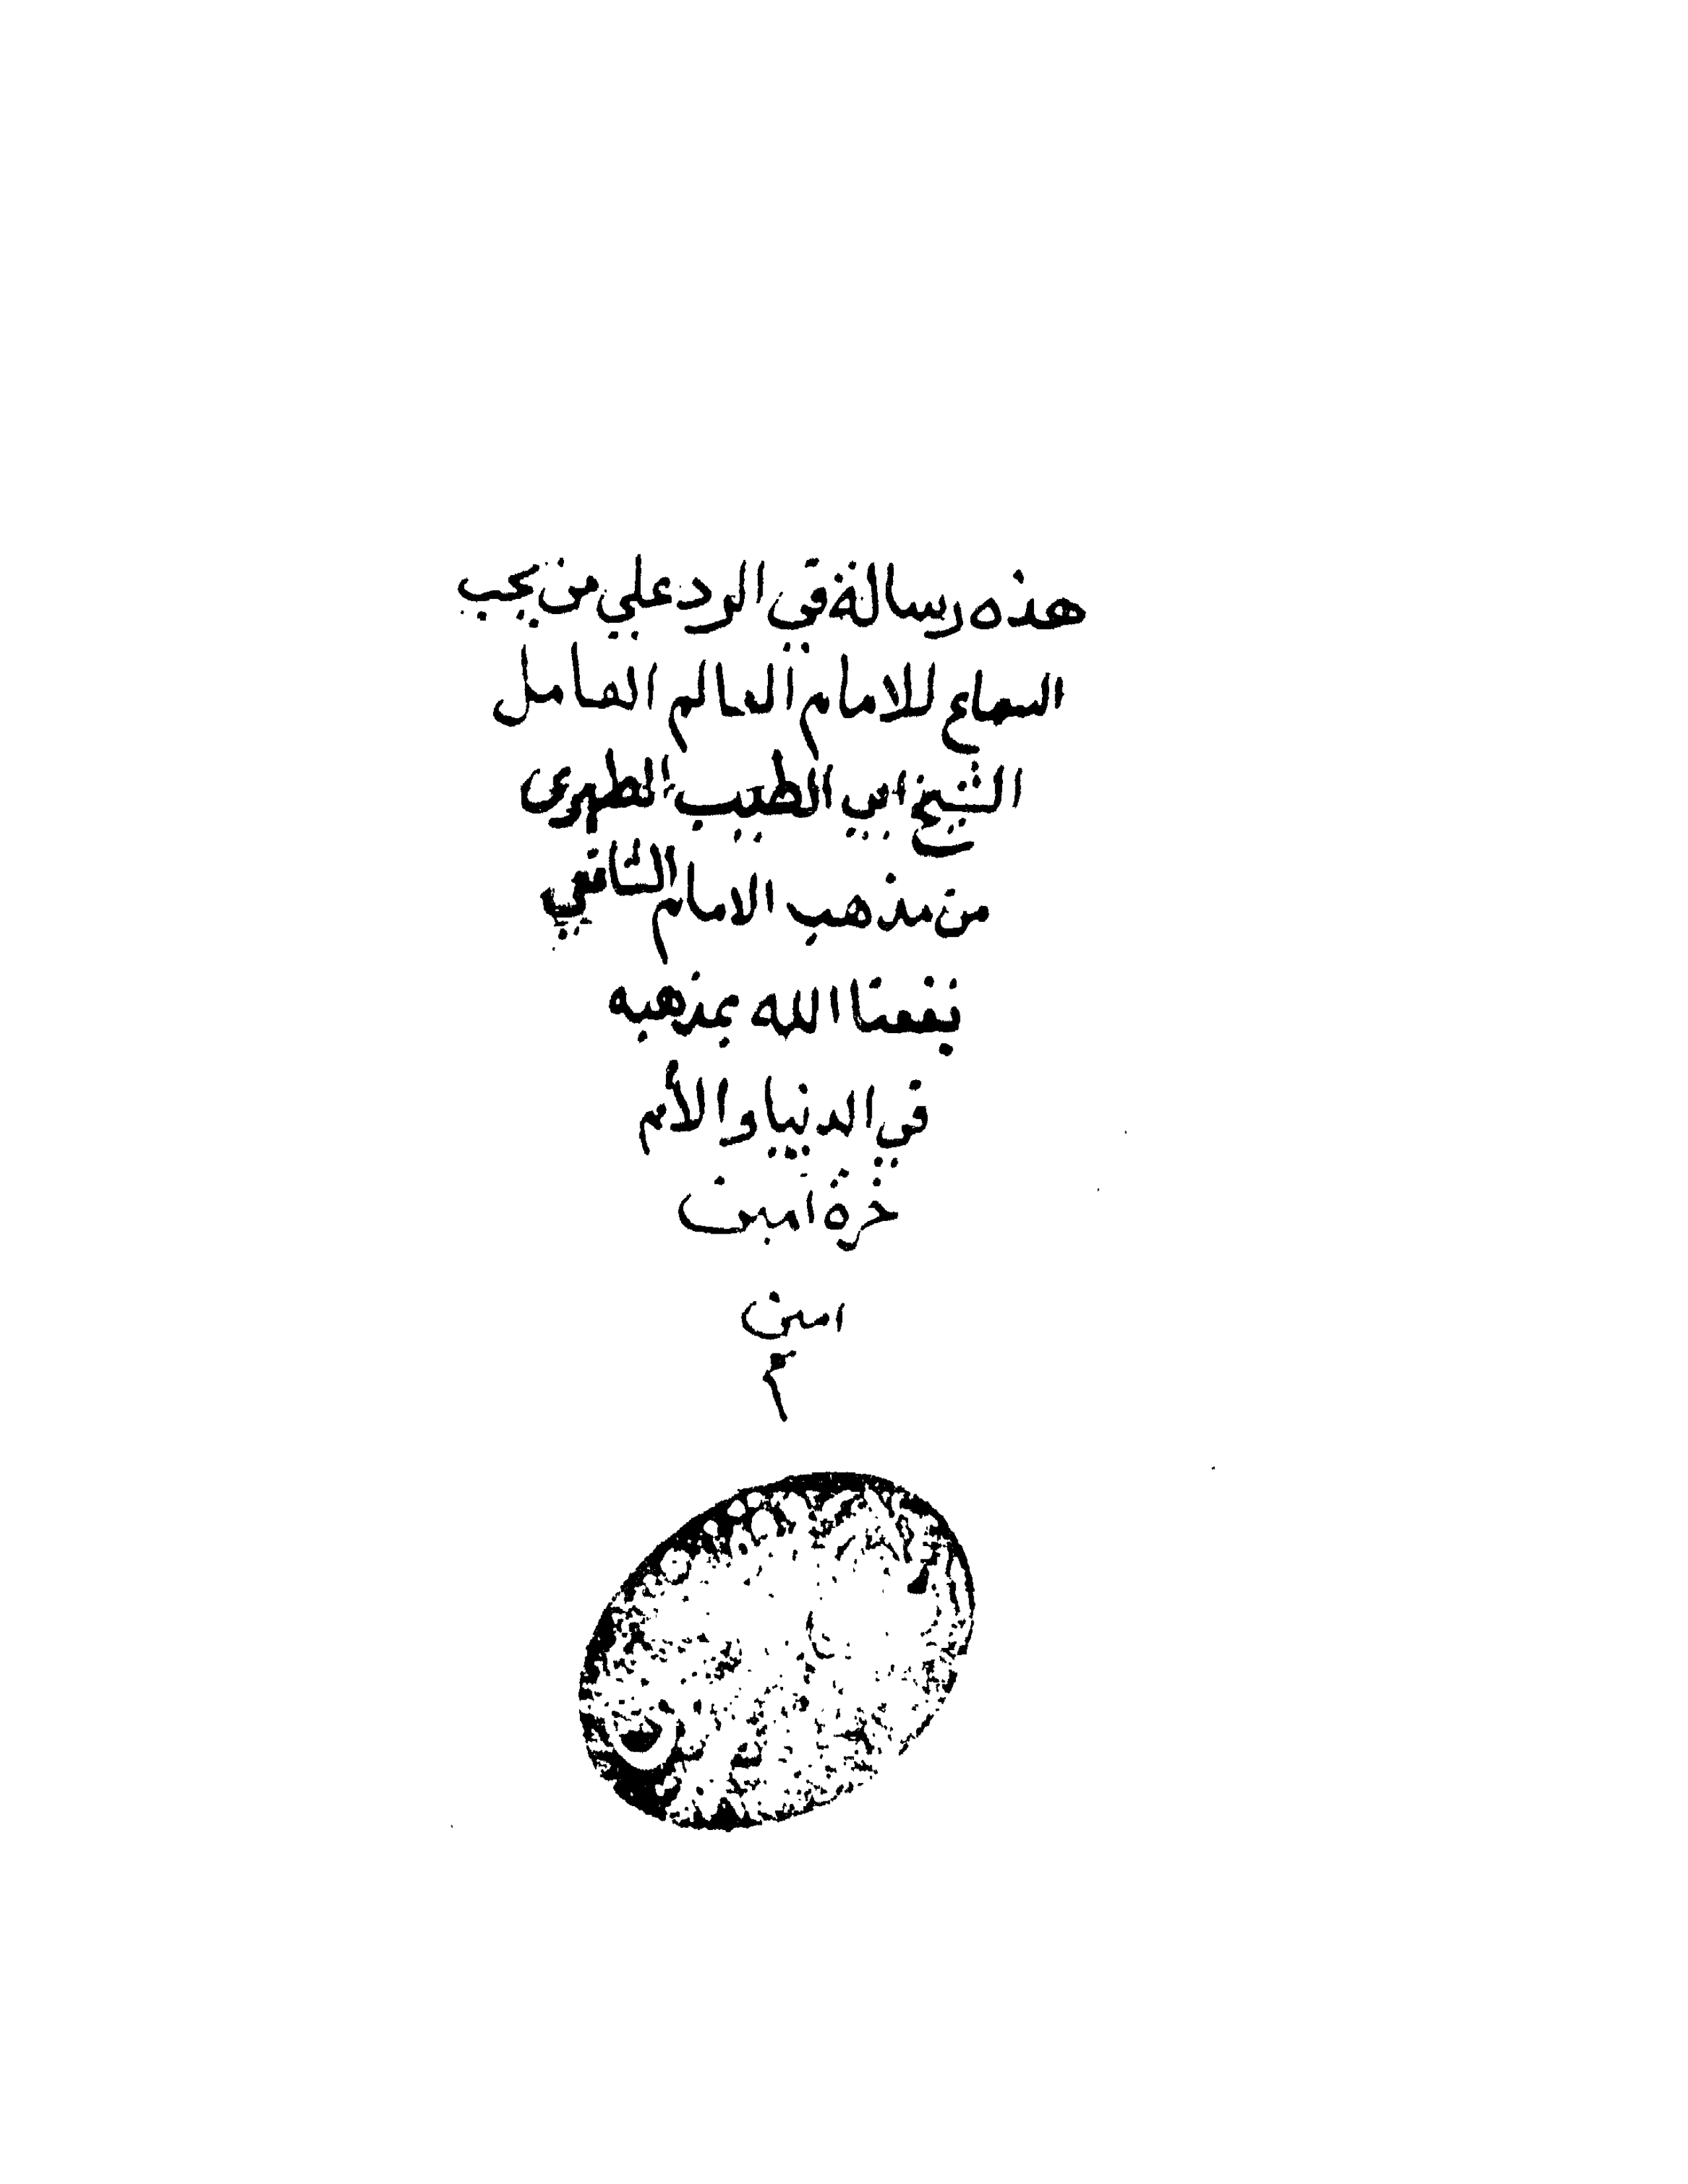 هذه رسالة في الرد علي من يحب
السماع للامام العالم العامل
الشيخ ابي الطيب الطبري
من مذهب الامام الشافعي
نفعنا الله بمذهبه
في الدنيا والأ
خرة امين
امين
م